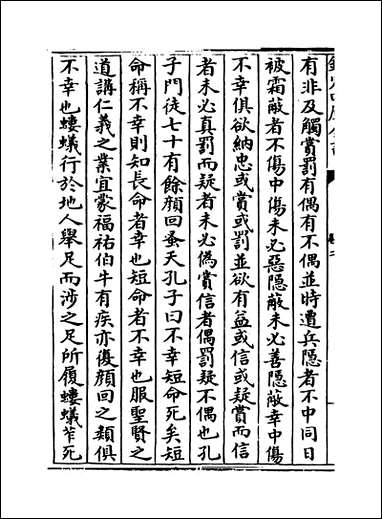 欽定四庫全書
卷二
有非及觸賞罰有偶有不偶並時遭兵隱者不中同日
被霜蔽者不傷中傷未必惡隱蔽未必善隱蔽幸中傷
不幸俱欲納忠或賞或罰並欲有益或信或疑賞而信
者未必真罰而疑者未必偽賞信者偶罰疑不偶也孔
子門徒七十有餘顔回蚤夭孔子曰不幸短命死矣短
命稱不幸則知長命者幸也短命者不幸也服聖賢之
道講仁義之業宜蒙福祐伯牛有疾亦復顔回之類俱
不幸也螻蟻行於地人舉足而涉之足所履螻蟻苲死